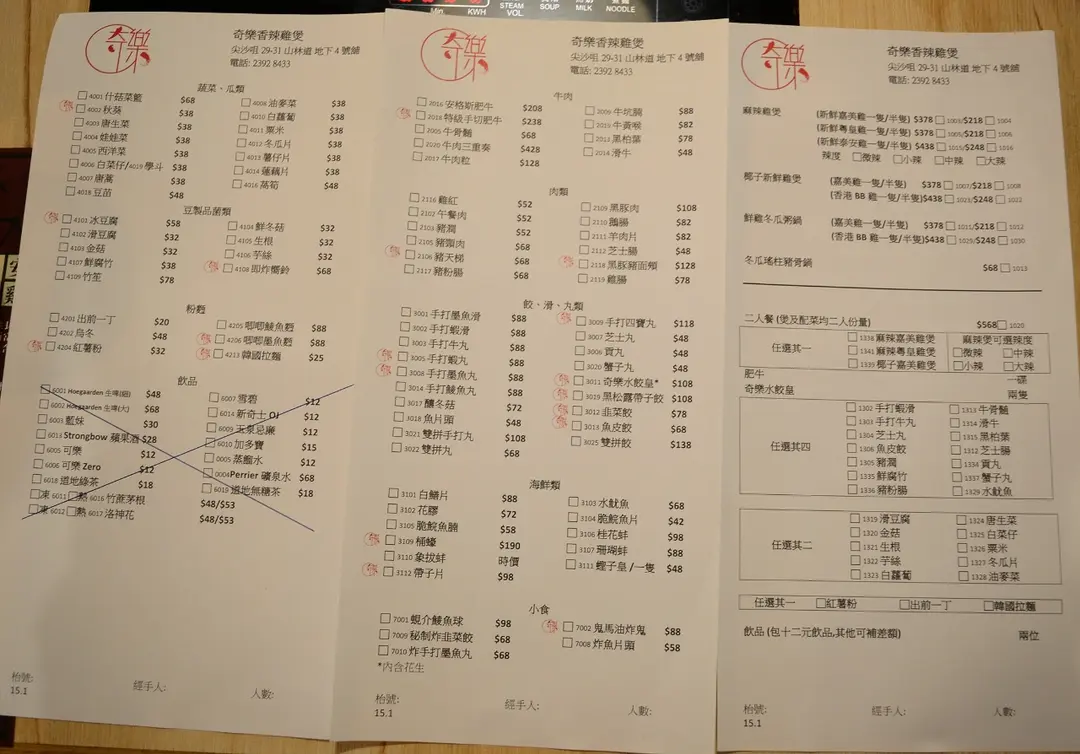 Min.
KWH
STEAM
VOL.
SOUP
MILK
NOODLE
奇樂
奇樂香辣雞煲
尖沙咀 29-31 山林道 地下 4 號舖
電話: 2392 8433
蔬菜、瓜類
4001 什菇菜籃 $68
4002 秋葵 $38
4003 唐生菜 $38
4004 娃娃菜 $38
4005 西洋菜 $38
4006 白菜仔/4019 學斗 $38
4007 唐蒿 $38
4018 豆苗 $48
4008 油麥菜 $38
4010 白蘿蔔 $38
4011 粟米 $38
4012 冬瓜片 $38
4013 薯仔片 $38
4014 蓮藕片 $38
4016 萵筍 $48
豆製品菌類
4101 冰豆腐 $58
4102 滑豆腐 $32
4103 金菇 $32
4107 鮮腐竹 $38
4109 竹笙 $78
4104 鮮冬菇 $32
4105 生根 $32
4106 芋絲 $32
4108 即炸響鈴 $68
粉麵
4201 出前一丁 $20
4202 烏冬 $48
4204 紅薯粉 $32
4205 唧唧鯪魚麵 $88
4206 唧唧墨魚麵 $88
4213 韓國拉麵 $25
飲品
6001 Hoegaarden 生啤(細) $48
6002 Hoegaarden 生啤(大) $68
6003 藍妹 $30
6013 Strongbow 蘋果酒 $28
6005 可樂 $12
6006 可樂 Zero $12
6018 道地綠茶 $18
凍 6011 熱 6016 竹蔗茅根 $48/$53
凍 6012 熱 6017 洛神花 $48/$53
6007 雪碧 $12
6014 新奇士 OJ $12
6009 玉泉忌廉 $12
6010 加多寶 $15
0005 蒸餾水 $12
0004 Perrier 礦泉水 $68
6019 道地無糖茶 $18
枱號:
15.1
經手人:
人數:
奇樂
奇樂香辣雞煲
尖沙咀 29-31 山林道 地下 4 號舖
電話: 2392 8433
牛肉
2016 安格斯肥牛 $208
2018 特級手切肥牛 $238
2005 牛骨髓 $68
2020 牛肉三重奏 $428
2017 牛肉粒 $128
2009 牛坑腩 $88
牛黃喉 $82
2013 黑柏葉 $78
2014 滑牛 $48
肉類
2116 雞紅 $52
2102 午餐肉 $52
2103 豬潤 $52
2105 豬頸肉 $68
2106 豬天梯 $68
2117 豬粉腸 $68
2109 黑豚肉 $108
2110 鵝腸 $82
2111 羊肉片 $82
2112 芝士腸 $48
2118 黑豚豬面頰 $128
2119 雞腸 $78
餃、滑、丸類
3001 手打墨魚滑 $88
3002 手打蝦滑 $88
3003 手打牛丸 $88
3005 手打蝦丸 $88
3008 手打墨魚丸 $88
3014 手打鯪魚丸 $88
3017 釀冬菇 $72
3018 魚片頭 $48
3021 雙拼手打丸 $108
3022 雙拼丸 $68
3009 手打四寶丸 $118
3007 芝士丸 $48
3006 貢丸 $48
3020 蟹子丸 $48
3011 奇樂水餃皇* $108
3019 黑松露帶子餃 $108
3012 韭菜餃 $78
3013 魚皮餃 $68
3025 雙拼餃 $138
海鮮類
3101 白鱔片 $88
3102 花膠 $72
3105 脆鯇魚腩 $58
3109 桶蠔 $190
3110 象拔蚌 時價
3112 帶子片 $98
3103 水魷魚 $68
3104 脆鯇魚片 $42
3106 桂花蚌 $98
3107 珊瑚蚌 $88
3111 蟶子皇 /一隻 $48
小食
7001 蜆介鯪魚球 $98
7009 秘制炸韭菜餃 $68
7010 炸手打墨魚丸 $68
*內含花生
7002 鬼馬油炸鬼 $88
7008 炸魚片頭 $58
枱號:
15.1
經手人:
人數:
奇樂
奇樂香辣雞煲
尖沙咀 29-31 山林道 地下 4 號舖
電話: 2392 8433
麻辣雞煲 (新鮮嘉美雞一隻/半隻) $378 1003/$218 1004
(新鮮粵皇雞一隻/半隻) $378 1005/$218 1006
(新鮮泰安雞一隻/半隻) $448 1015/$248 1016
辣度 微辣 小辣 中辣 大辣
椰子新鮮雞煲 (嘉美雞一隻/半隻) $378 1007/$218 1008
(香港 BB 雞一隻/半隻)$438 1021/$248 1022
鮮雞冬瓜粥鍋 (嘉美雞一隻/半隻) $378 1011/$218 1012
(香港 BB 雞一隻/半隻)$438 1029/$248 1030
冬瓜瑤柱豬骨鍋 $68 1013
二人餐 (煲及配菜均二人份量) $568 1020
任選其一
1338 麻辣嘉美雞煲
1341 麻辣粵皇雞煲
1339 椰子嘉美雞煲
麻辣雞煲可選辣度
微辣 中辣
小辣 大辣
肥牛 一碟
奇樂水餃皇 兩隻
任選其四
1302 手打蝦滑
1303 手打牛丸
1304 芝士丸
1306 魚皮餃
1305 豬潤
1335 鮮腐竹
1336 豬粉腸
1313 牛骨髓
1314 滑牛
1315 黑柏葉
1312 芝士腸
1334 貢丸
1337 蟹子丸
1329 水魷魚
任選其二
1319 滑豆腐
1320 金菇
1321 生根
1322 芋絲
1323 白蘿蔔
1324 唐生菜
1325 白菜仔
1326 粟米
1327 冬瓜片
1328 油麥菜
任選其一 紅薯粉 出前一丁 韓國拉麵
飲品 (包十二元飲品,其他可補差額) 兩位
枱號:
15.1
經手人:
人數: